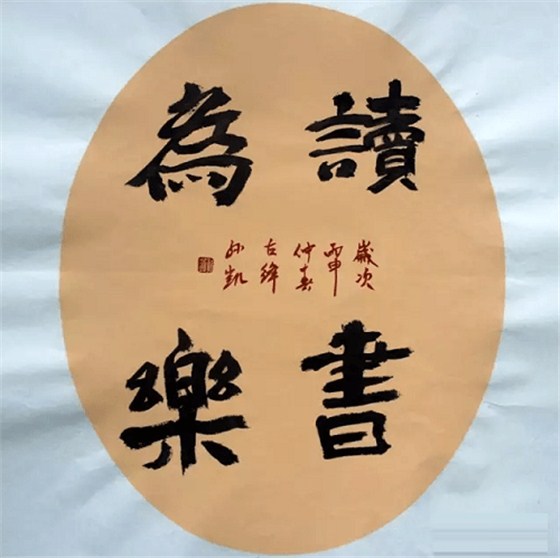 讀書
為樂
歲次
丙申
仲春
古絳